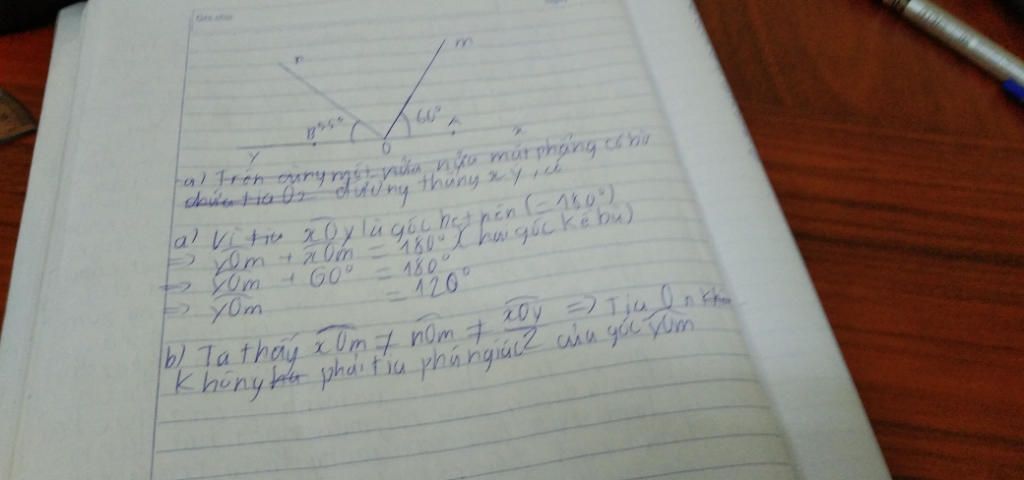 n
m
B
55°
60°
x
y
O
a) Trên cùng một nửa nửa mặt phẳng có bờ
chứa tia Oz đường thẳng xy, có
a) Vì tia xOy là góc bẹt nên (= 180°)
=> yOm + xOm = 180° (hai góc kề bù)
=> yOm + 60° = 180°
=> yOm = 120°
b) Ta thấy xOm ≠ nOm ≠ xOy/2 => Tia On
không phải tia phân giác của góc yOm